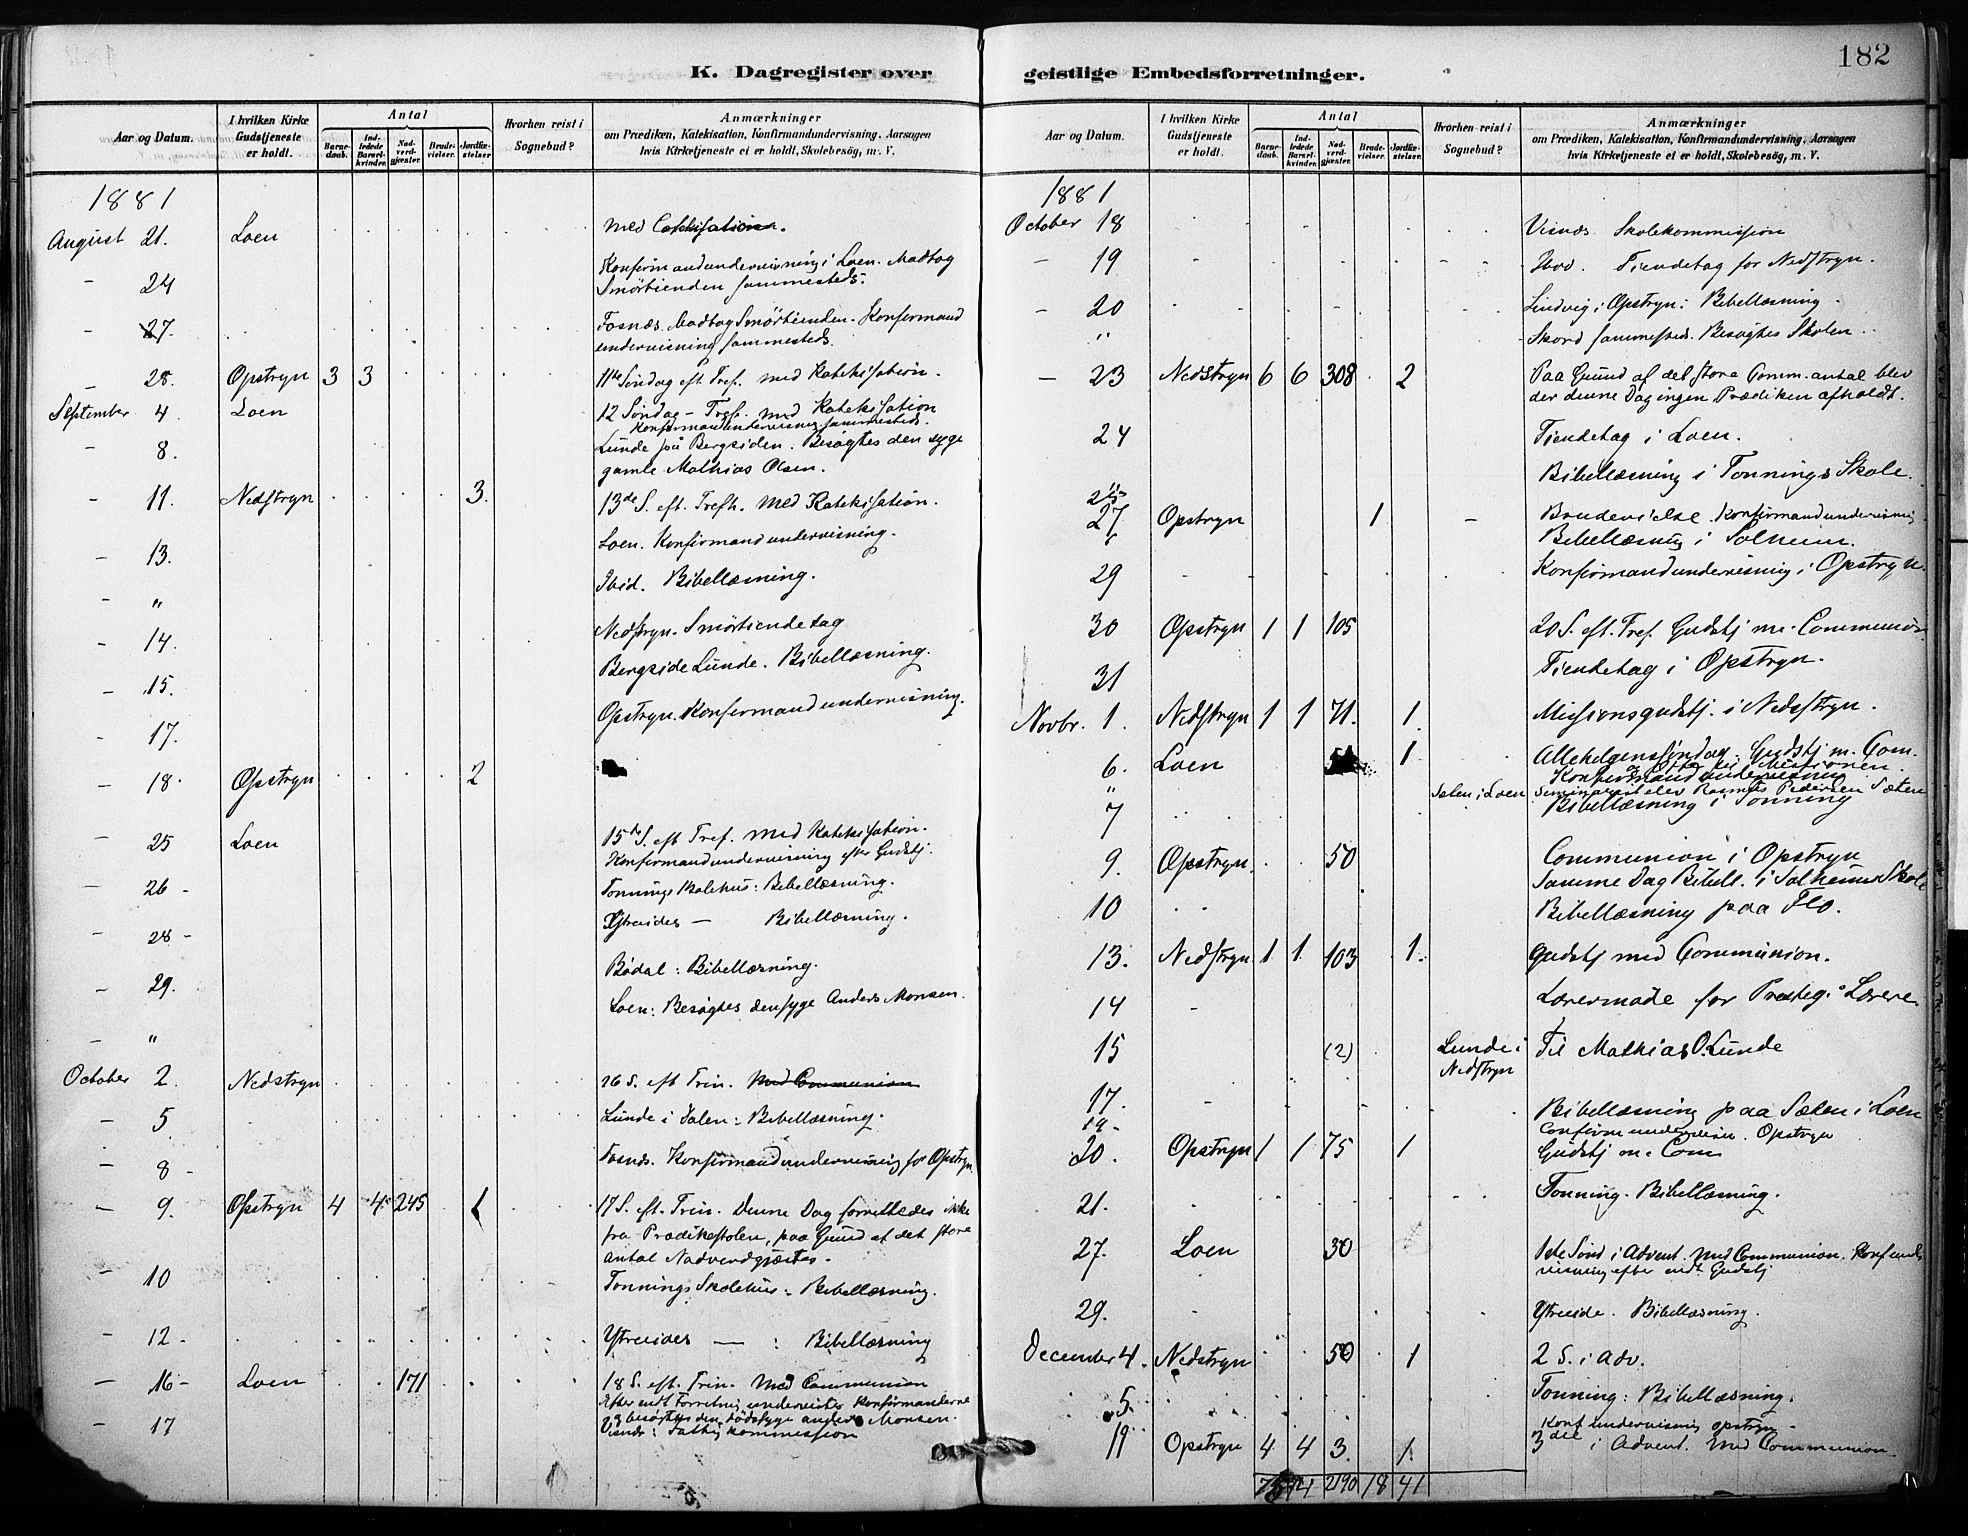 182
K. Dagregister over
Aar og Datum.
I hvilken Kirke Gudstjeneste er holdt.
Antal
Barnedaab.
Indledede Barselkvinder.
Nadverdgjæster.
Brudevielser.
Jordfæstelser
Hvorhen reist i Sognebud?
Anmærkninger
om Prædiken, Katekisation, Konfirmandundervisning, Aarsagen
hvis Kirketjeneste ei er holdt, Skolebesög, m. V.
1881
August 21. Loen med Catekisation.
- 24 Konfirmandundervisning i Loen. Madtog
Smörtienden sammesteds.
- 27. Fosnæs. Modtog Smörtienden. Konfirmand
undervisning sammesteds.
- 28. Opstryn 3 3 11te Söndag eft. Tref. med Katekisation.
September 4. Loen 12 Söndag - Tref. med Katekisation
Konfirmandundervisning sammesteds.
- 8. Lunde på Bergsiden. Besøgtes den syge
gamle Mathias Olsen.
- 11. Nedstryn 3. 13de S. eft. Trefh. med Katekisation.
- 13. Loen. Konfirmandundervisning.
- " Ibid. Bibellæsning.
- 14. Nedstryn. Smörtiendetag
- 15. Bergside Lunde. Bibellæsning.
- 17. Opstryn. Konfirmandundervisning.
- 18. Opstryn 2
- 25 Loen 15de S. eft Tref. med Katekisation.
Konfirmandundervisning efter Gudstj.
- 26 - Tonnings Skolehus: Bibellæsning.
- 28 - Ytreides - Bibellæsning.
- 29. Bødal: Bibellæsning.
- " Loen: Besøgtes den syge Anders Monsen.
October 2. Nedstryn 16 S. eft Trin. med Communion
- 5. Lunde i Dalen: Bibellæsning.
- 8 - Fosnæs. Konfirmandundervisning for Opstryn
- 9. Opstryn 4 4 245 1 17 S. eft. Trin. Denne Dag forrettedes ikke
fra Prædikestolen, paa Grund af det store
Antal Nadverdgjæster.
- 10 Tonnings Skolehus: Bibellæsning.
- 12 - Ytreides - : Bibellæsning
- 16 - Loen 171 18 S. eft. Trin. Med Communion
Efter endt Forretning undervistes Konfirmanderne
og besøgtes den dödssyge Anders Monsen.
- 17 Visnæs: Fattigkommission
geistlige Embedsforretninger.
Aar og Datum.
I hvilken Kirke Gudstjeneste er holdt.
Antal
Barnedaab.
Indledede Barselkvinder.
Nadverdgjæster.
Brudevielser.
Jordfæstelser.
Hvorhen reist i Sognebud?
Anmærkninger
om Prædiken, Katekisation, Konfirmandundervisning, Aarsagen
hvis Kirketjeneste ei er holdt, Skolebesög, m. V.
1881
October 18 Visnæs. Skolekommission
- 19 Tiendetag for Nedstryn.
- 20 Lindvig i Opstryn: Bibellæsning
" Skord sammesteds. Besøgtes Skolen
- 23 Nedstryn 6 6 308 2 Paa Grund af det store Comm. antal blev
der denne Dag ingen Prædiken afholdt.
24 Tiendetag i Loen.
25 Bibellæsning i Tonnings Skole.
27 Opstryn 1 - Brudevielse. Konfirmandundervisning
" Bibellæsning i Solheim.
29 Konfirmandundervisning i Opstryn.
30 Opstryn 1 1 105 20 S. eft. Tref. Gudstj m. Communion
31 Tiendetag i Opstryn.
Novbr. 1. Nedstryn 1 1 71. 1. Missionsgudstj. i Nedstryn.
6. Loen 1 Allehelgenssöndag. Gudstj m. Com.
og Offer til Missionen.
Konfirmandundervisning
" Sæten i Loen Seminarist elev Rasmus Pedersen Sæten
7 Bibellæsning i Tonning
9. Opstryn. 50 Communion i Opstryn
Samme Dag Bibell. i Solheims Skole
10 Bibellæsning paa Flo.
13. Nedstryn 1 1 103 1. Gudstj med Communion.
14 Lærermøde for Præsteg. Lærere
15 (2) Lunde i Nedstryn Til Mathias O. Lunde
17. Bibellæsning paa Sæten i Loen
19 - Confirm undervisn. Opstryn
20. Opstryn 1 1 75 1 Gudstj m. Com
21. Tonning. Bibellæsning.
27. Loen 30 1ste Sönd i Advent. Med Communion. Konf under
visning efter endt Gudstj
29. Ytreide. Bibellæsning.
December 4. Nedstryn 50 1 2 S. i Adv.
5. Tonning: Bibellæsning.
Konf undervisning Opstryn -
11 Opstryn 4 4 3. 1. 3die i Advent. Med Communion
75 74 2190 18 41